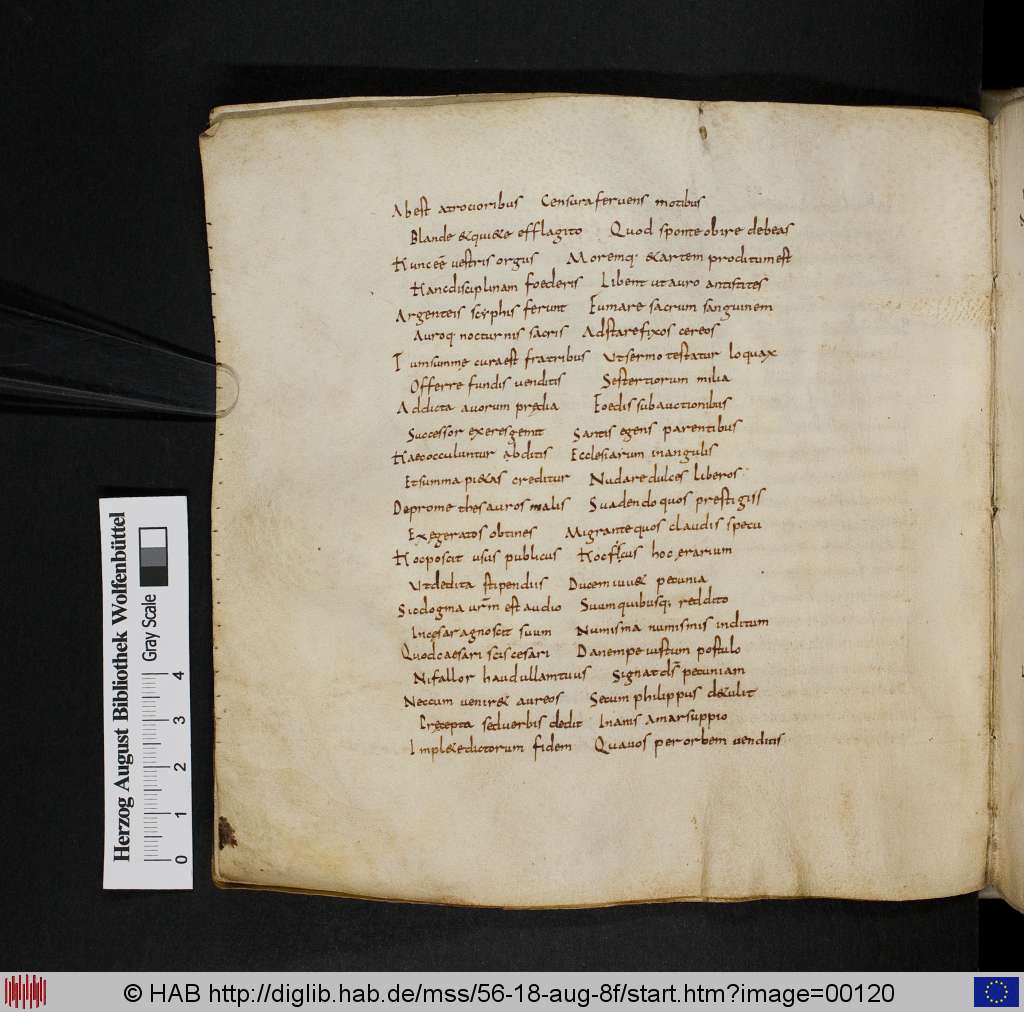 Abest atrocioribus Censura feruens motibus
Blande &qui&e efflagito Quod sponte obire debeas
Hunceē uestris orgus Moremq; &artem proditum est
Hancdisciplinam foederis Libent utauro antistites
Argenteis scyphis ferunt Fumare sacrum sanguinem
Auroq; nocturnis sacris Adstare fixos cereos
Tumsumme curaest fratribus Utsermo testatur loquax
Offerre fundis uenditis Sestertiorum milia
Addicta auorum prędia Foedis subauctionibus
Successor exeres gemit Santis egens parentibus
Haecocculuntur abditis Ecclesiarum inangulis
Etsumma pi&as creditur Nudaredulces liberos
Deprome thesauros malis Suadendo quos prestigiis
Exegeratos obtines Nigrante quos claudis specu
Hocposcit usus publicus Hocfiscus hoc erarium
Utdedita stipendiis Ducem iuu& pecunia
Sicdogma urm̄ est audio Suumquibusq; reddito
Incesar agnoscit suum Numisma nummis inditum
Quodcaesari scis cesari Danempe iustum postulo
Nifallor haud ullamtuus Signat ds̄ pecuniam
Neccum uenir& aureos Secum philippus d&ulit
Precepta seduerbis dedit Inanis amarsuppio
Impl&edictorum fidem Quauos perorbem uenditis
Herzog August Bibliothek Wolfenbüttel
Gray Scale
0 1 2 3 4
© HAB http://diglib.hab.de/mss/56-18-aug-8f/start.htm?image=00120